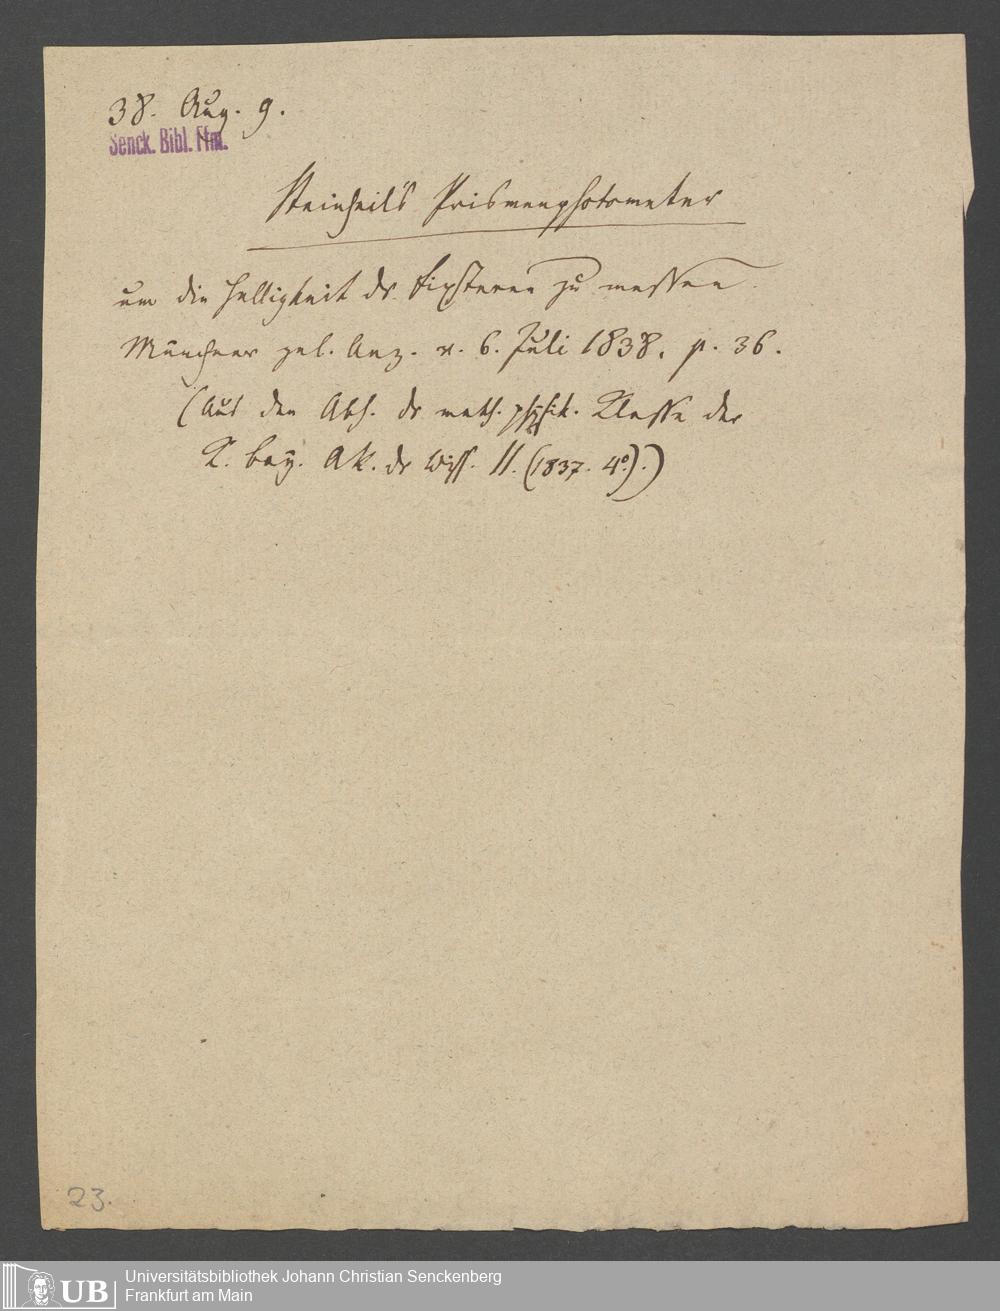 38. Aug. 9.
Senck. Bibl. Ffm.
Steinheil's Prismenphotometer
um die Helligkeit dr Fixsterne zu messen.
Münchner gel. Anz. v. 6. Juli 1838. p. 36.
(Aus den Abh. dr math. physik. Klasse der
K. bay. Ak. dr Wiss. II. (1837. 4°).)
23.
UB
Universitätsbibliothek Johann Christian Senckenberg
Frankfurt am Main